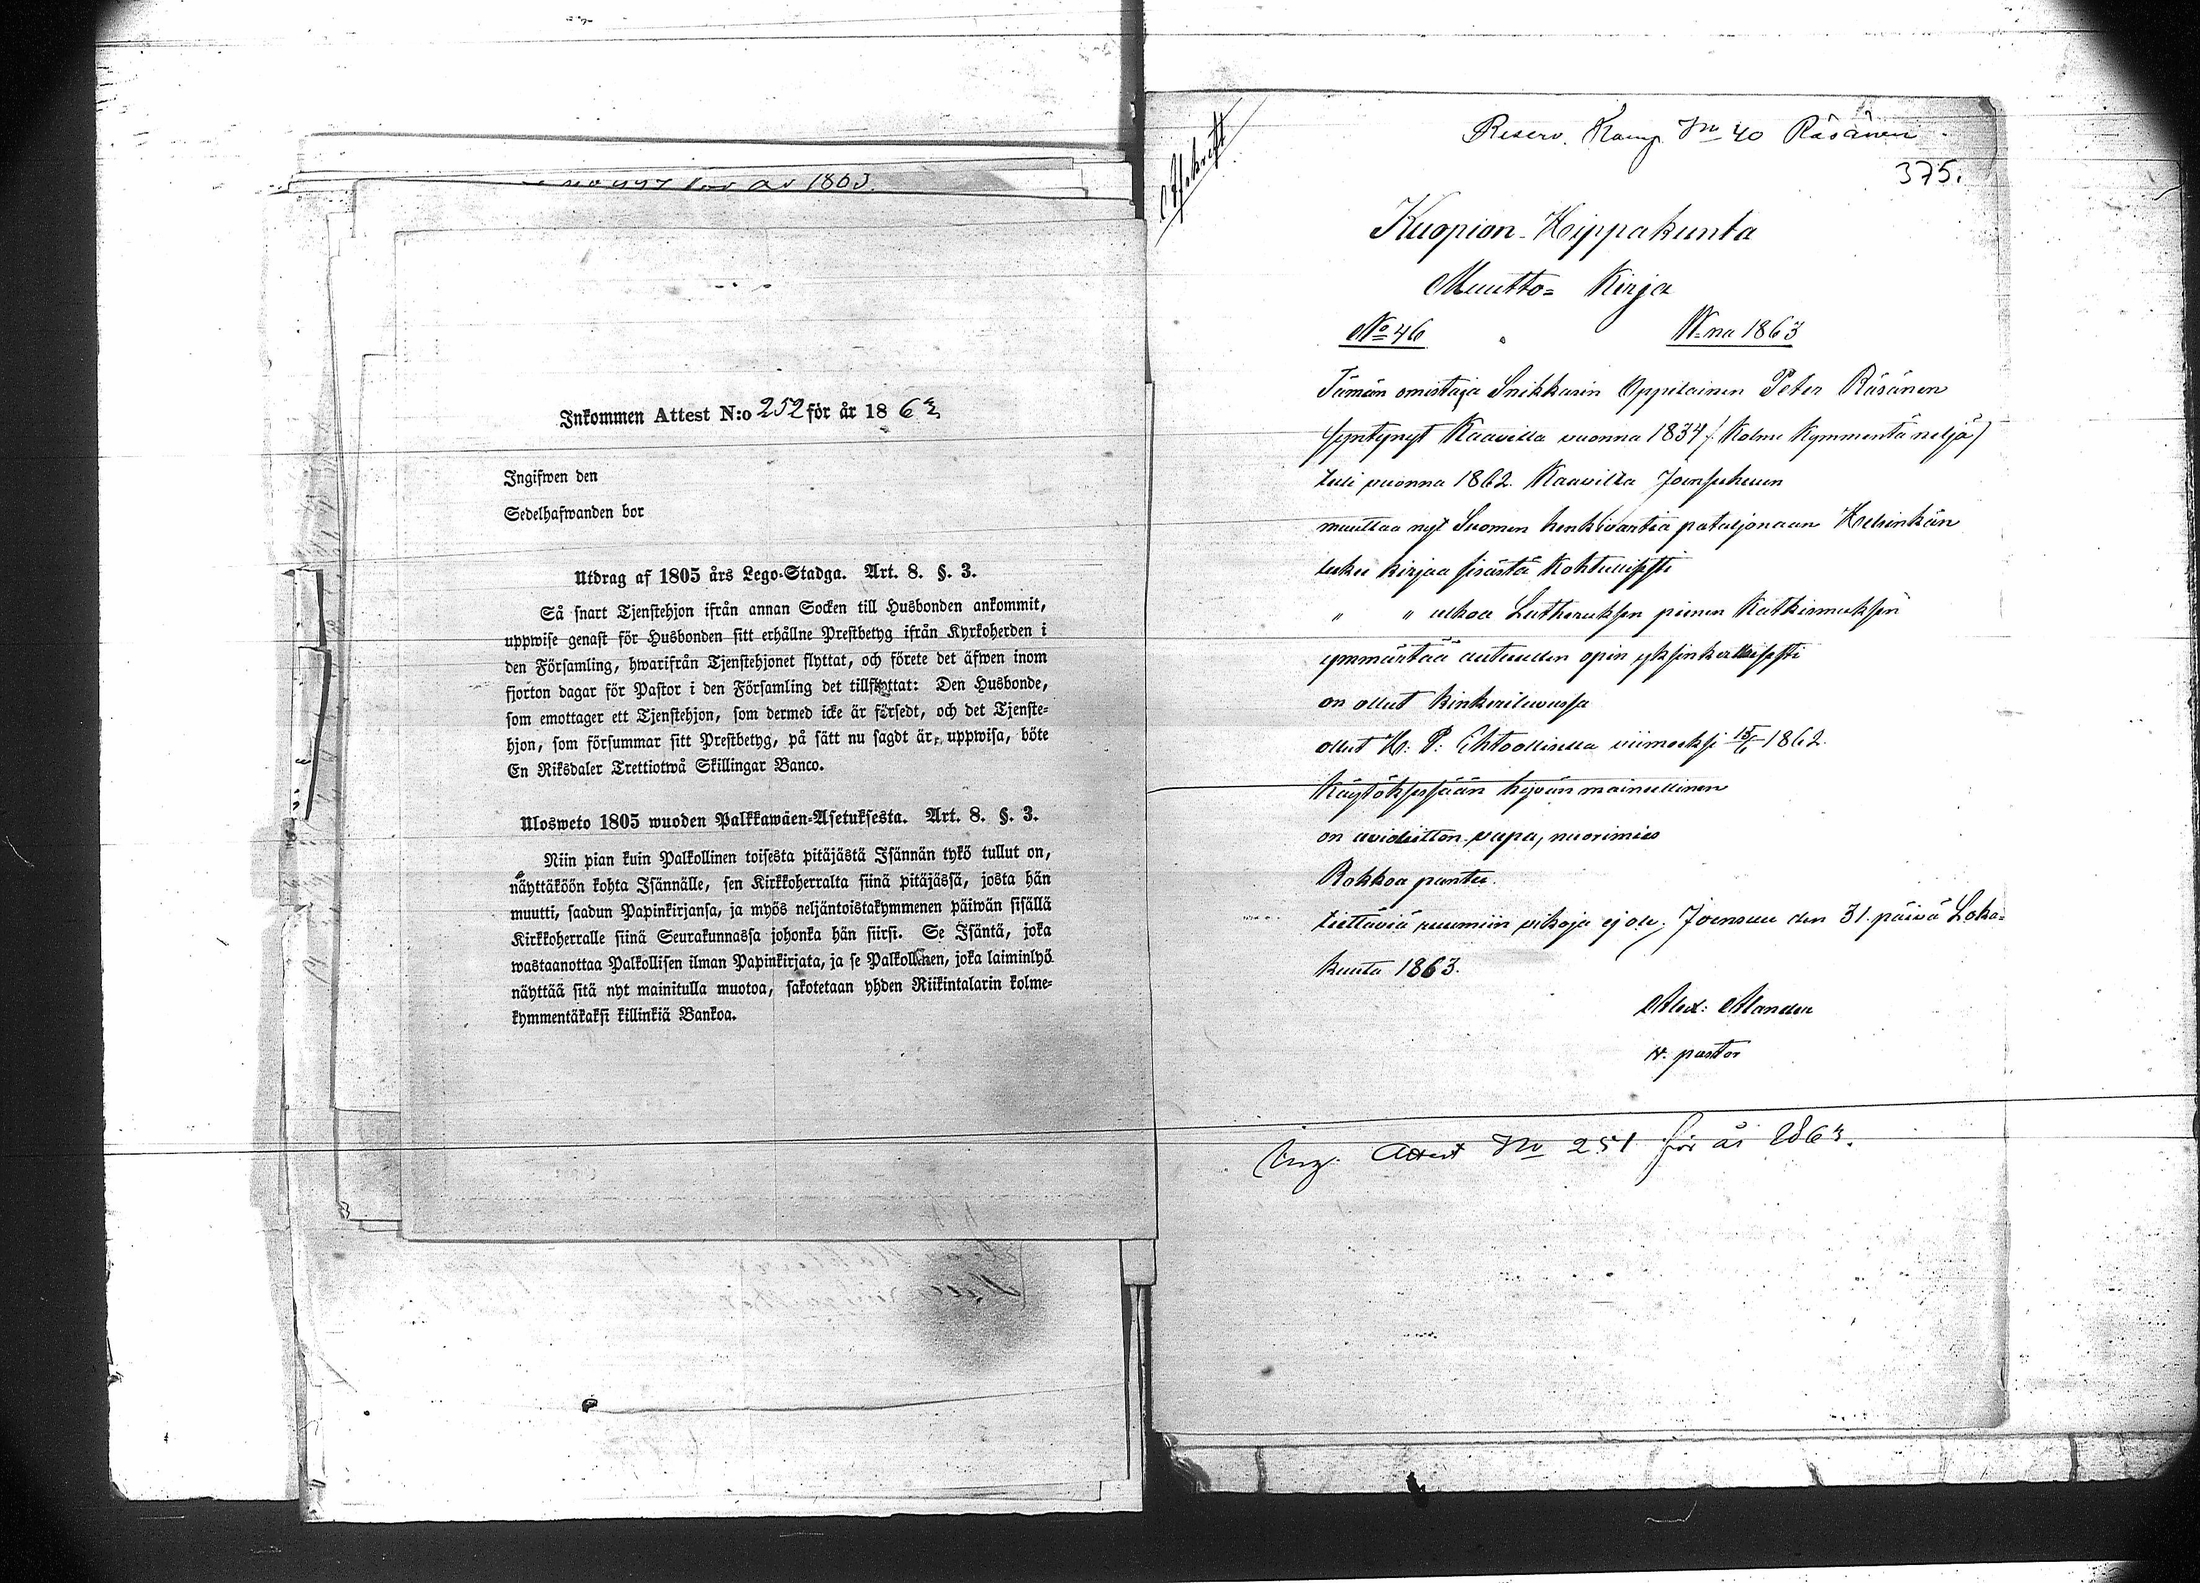 för år 1863.
Inkommen Attest N:o 252 för år 1863
Ingifwen den
Sedelhafwanden bor
Utdrag af 1805 års Lego-Stadga. Art. 8. §. 3.
Så snart Tjenstehjon ifrån annan Socken till Husbonden ankommit,
uppwise genast för Husbonden sitt erhållne Prestbetyg ifrån Kyrkoherden i
den Församling, hwarifrån Tjenstehjonet flyttat, och förete det äfwen inom
fjorton dagar för Pastor i den Församling det tillflyttat: Den Husbonde,
som emottager ett Tjenstehjon, som dermed icke är försedt, och det Tjenste-
hjon, som försummar sitt Prestbetyg, på sätt nu sagdt är, uppwisa, böte
En Riksdaler Trettiotwå Skillingar Banco.
Ulosweto 1805 wuoden Palkkawäen-Asetuksesta. Art. 8. §. 3.
Niin pian kuin Palkollinen toisesta pitäjästä Isännän tykö tullut on,
näyttäköön kohta Isännälle, sen Kirkkoherralta siinä pitäjässä, josta hän
muutti, saadun Papinkirjansa, ja myös neljäntoistakymmenen päiwän sisällä
Kirkkoherralle siinä Seurakunnassa johonka hän siirsi. Se Isäntä, joka
wastaanottaa Palkollisen ilman Papinkirjata, ja se Palkollinen, joka laiminlyö
näyttää sitä nyt mainitulla muotoa, sakotetaan yhden Riikintalarin kolme-
kymmentäkaksi killinkiä Bankoa.
Afskrift
Reserv. Komp. No 40 Räsänen
375.
Kuopion Hippakunta
Muutto= Kirja
No 46
W:na 1863
Tämän omistaja Snikkarin Oppilainen Peter Räsänen
syntynyt Kaavilla vuonna 1834 /: Kolme Kymmentä neljä /
tuli vuonna 1862 Kaavilta Joensuhuun
muuttaa nyt Suomen henkivartia pataljonaan Helsinkiin
lukee kirjaa sisästä Kohtullisesti
" " ulkoa Lutheruksen pienen Katkismuksen
ymmärtää autuuden opin yksinkertaisesti
on ollut kinkerilurussa
ollut H: P: Ehtoollisella viimeksi 15/6 1862.
Käytöksessään hyvän maineellinen
on avioliittoon vapa, nuorimies
Rokkoa pantu.
tiettäviä ruumiin vikoja ej ole; Joensuu den 31. päivä Loka=
kuuta 1863.
Alex: Alander
v. pastor
Ing. Attest No 251 för år 1863.